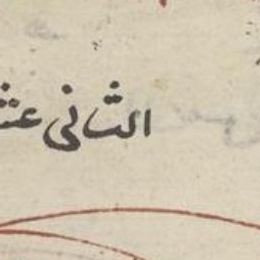 الثانى عش